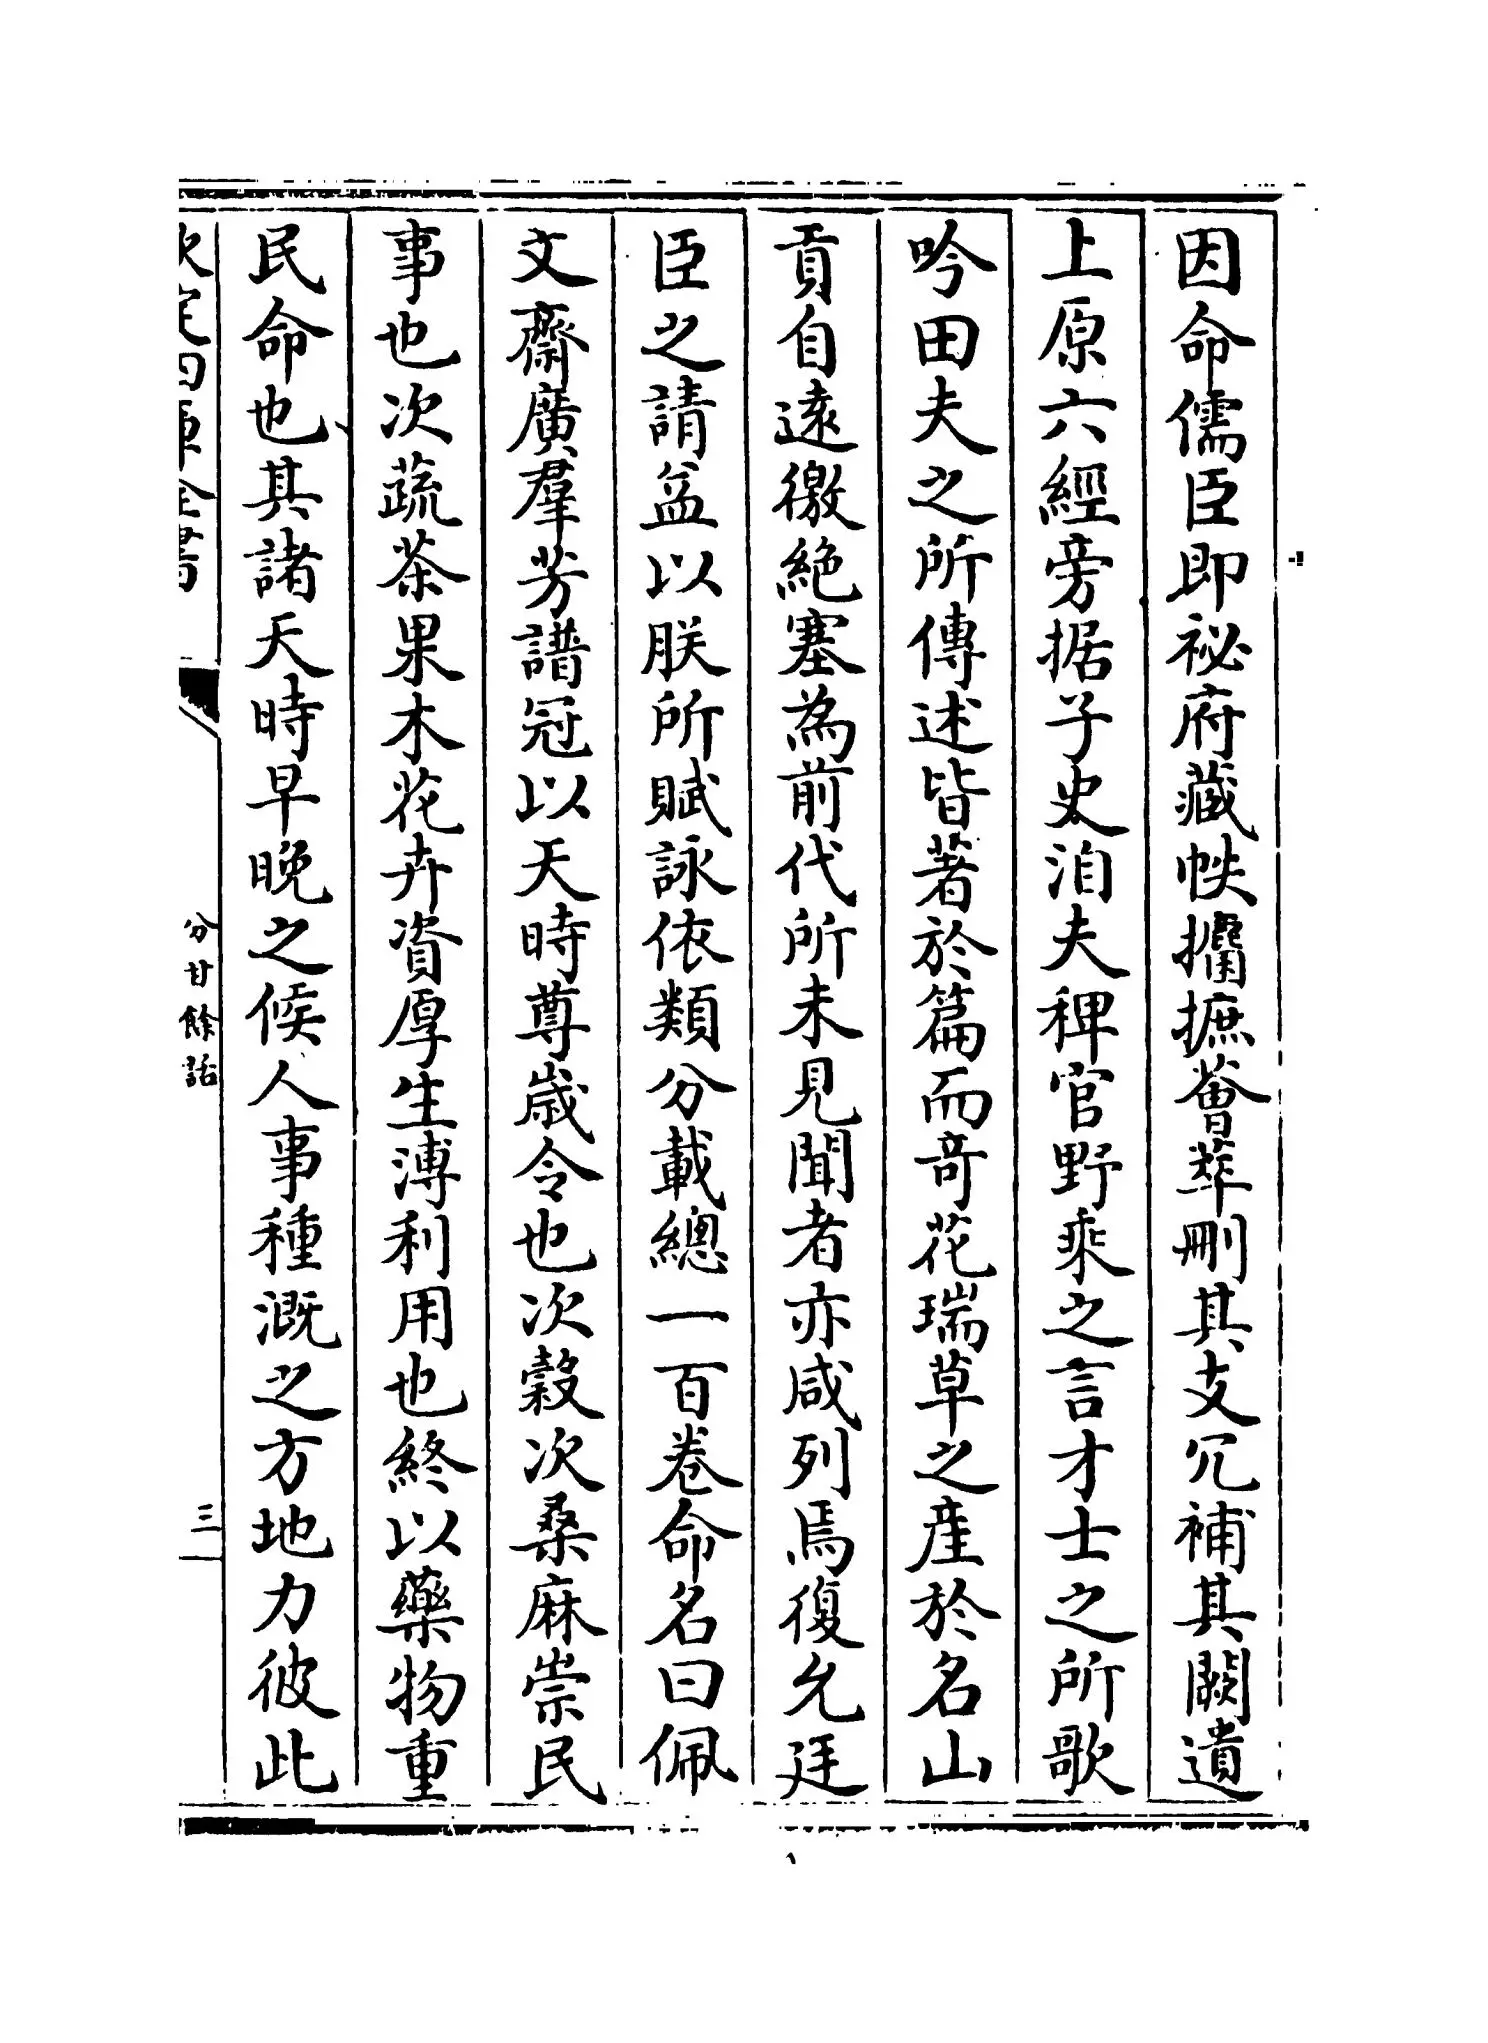 因命儒臣即祕府藏帙攟摭薈萃刪其支冗補其闕遺
上原六經旁据子史洎夫稗官野乘之言才士之所歌
吟田夫之所傳述皆著於篇而奇花瑞草之産於名山
貢自遠徼絶塞為前代所未見聞者亦咸列焉復允廷
臣之請益以朕所賦詠依類分載總一百卷命名曰佩
文齋廣羣芳譜冠以天時尊歲令也次穀次桑麻崇民
事也次蔬茶果木花卉資厚生溥利用也終以藥物重
民命也其諸天時早晚之候人事種溉之方地力彼此
欽定四庫全書
分甘餘話
三